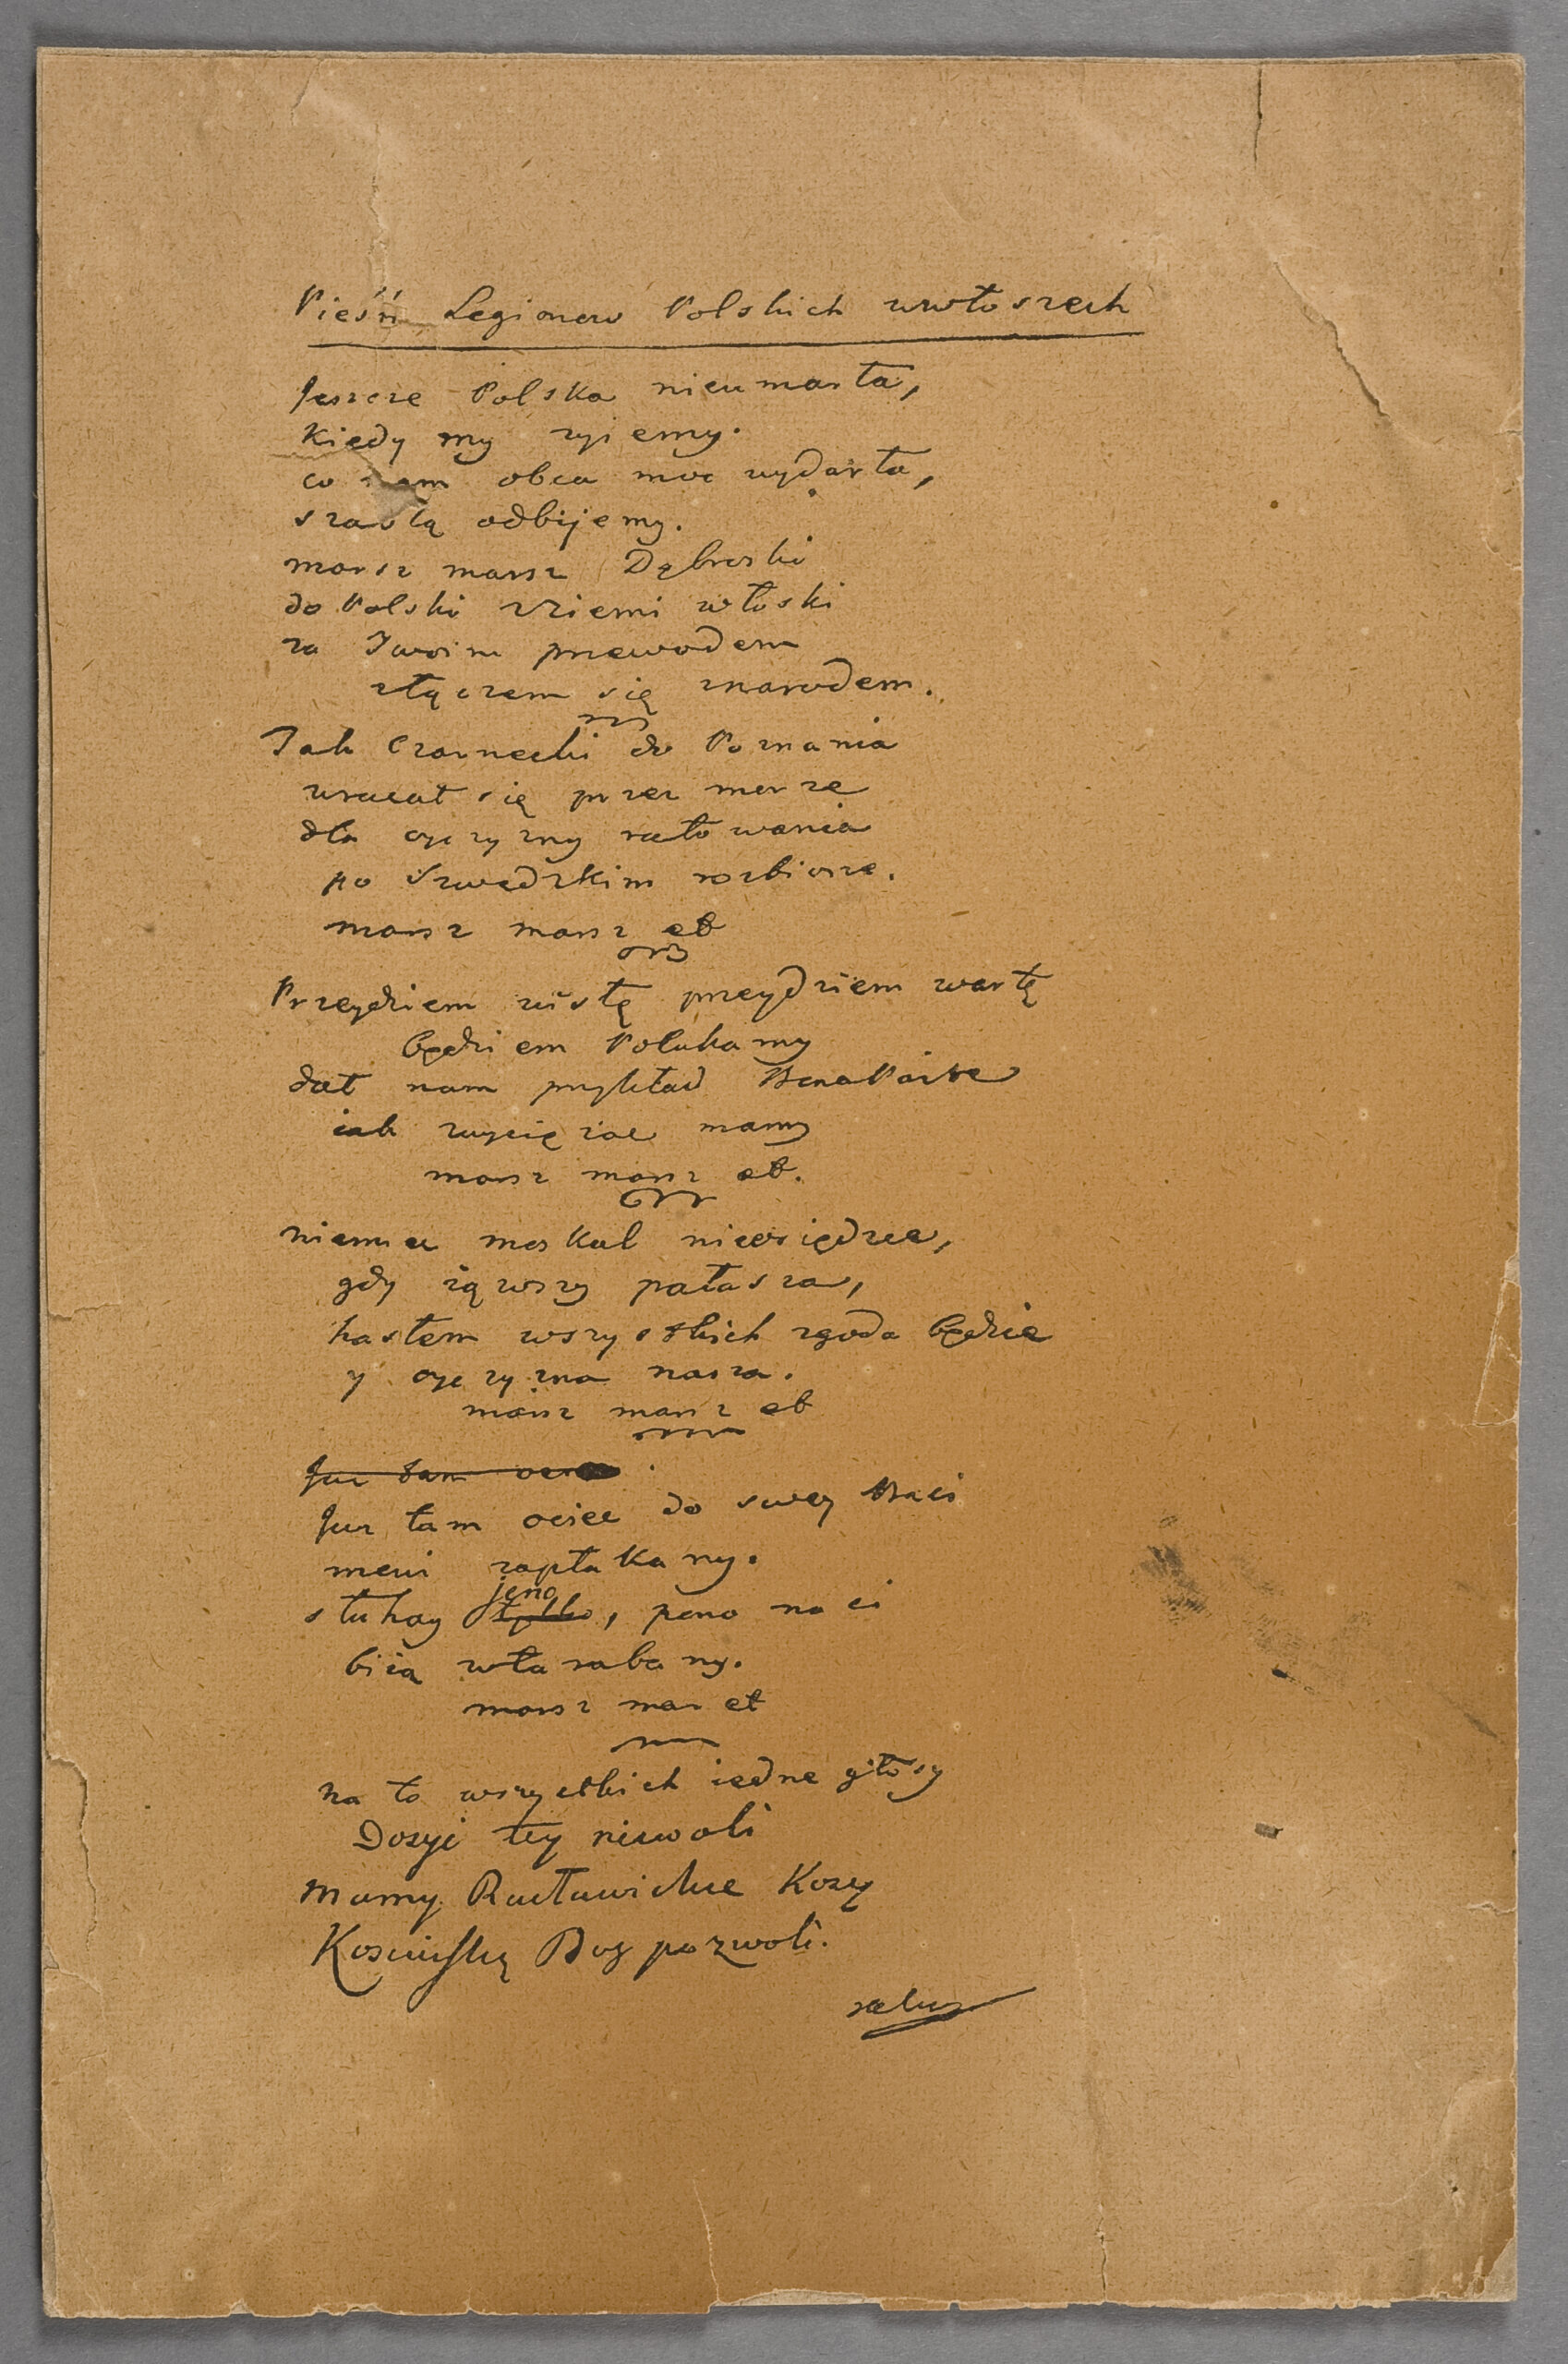 Pieśń Legionow Polskich wewłoszech
Jeszcze Polska nieumarła,
kiedy my zyiemy.
co nam obca moc wydarła,
szablą odbijemy.
marsz marsz Dąbroski
do Polski zZiemi włoski
za Twoim przewodem
złączem się znarodem.
Jak Czarnecki do Poznania
wracał się przez morze
dla oyczyzny ratowania
po Szwedzkim rozbiorze.
marsz marsz et
Przeydziem wisłę przeydziem wartę
będziem Polakamy
dał nam przykład BonaParte
iak zwycięzac mamy
marsz marsz et.
niemiec moskal nieosiędzie,
gdy iąwszy pałasza,
hasłem wszystkich zgoda będzie
y oyczyzna nasza.
marsz marsz et
Juz tam
Juz tam ociec do swey Basi
mowi zapłakany.
słuhay jeno, pono nasi
biią wtarabany.
marsz mar et
na to wszystkich iedne głosy
Dosyć tey niewoli
mamy Racławickie Kosy
Kosciuszkę Bog pozwoli.